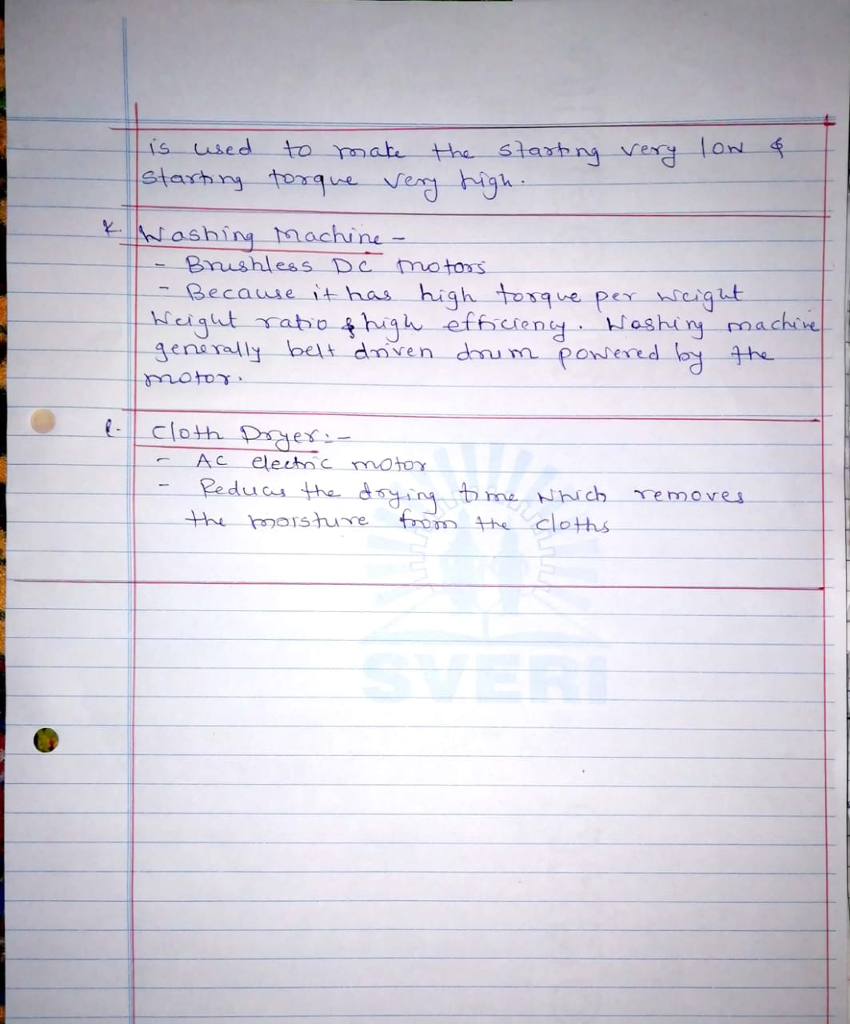 is used to make the starting very low &
starting torque very high.
k. Washing Machine -
- Brushless DC motors
- Because it has high torque per weight
Weight ratio & high efficiency. Washing machine
generally belt driven drum powered by the
motor.
l. Cloth Dryer:-
- AC electric motor
- Reduces the drying time which removes
the moisture from the cloths
SVERI